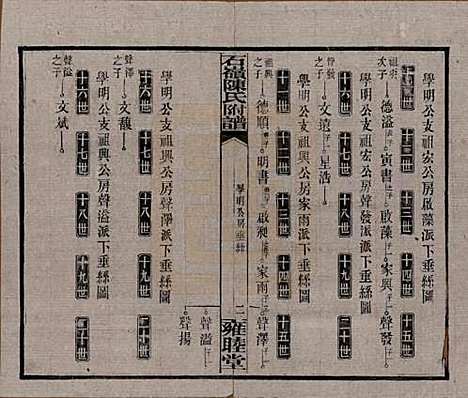 學明公支祖宏公房啟藻派下垂絲圖
十二世 十三世 十四世 十五世
德溢 寅書 啟藻 家興 聲發
次子
學明公支祖宏公房聲發派下垂絲圖
十六世 十七世 十八世 十九世 二十世
聲發之子 文遠 星浩
學明公支祖興公房家雨派下垂絲圖
十一世 十二世 十三世 十四世 十五世
祖興之子 德順 明書 啟和 家雨 聲澤
聲溢
聲揚
石嶺陳氏附譜
學明公房垂絲
二
雍睦堂
學明公支祖興公房聲澤派下垂絲圖
十六世 十七世 十八世 十九世 二十世
聲澤之子 文馥
學明公支祖興公房聲溢派下垂絲圖
十六世 十七世 十八世 十九世 二十世
聲溢之子 文斌